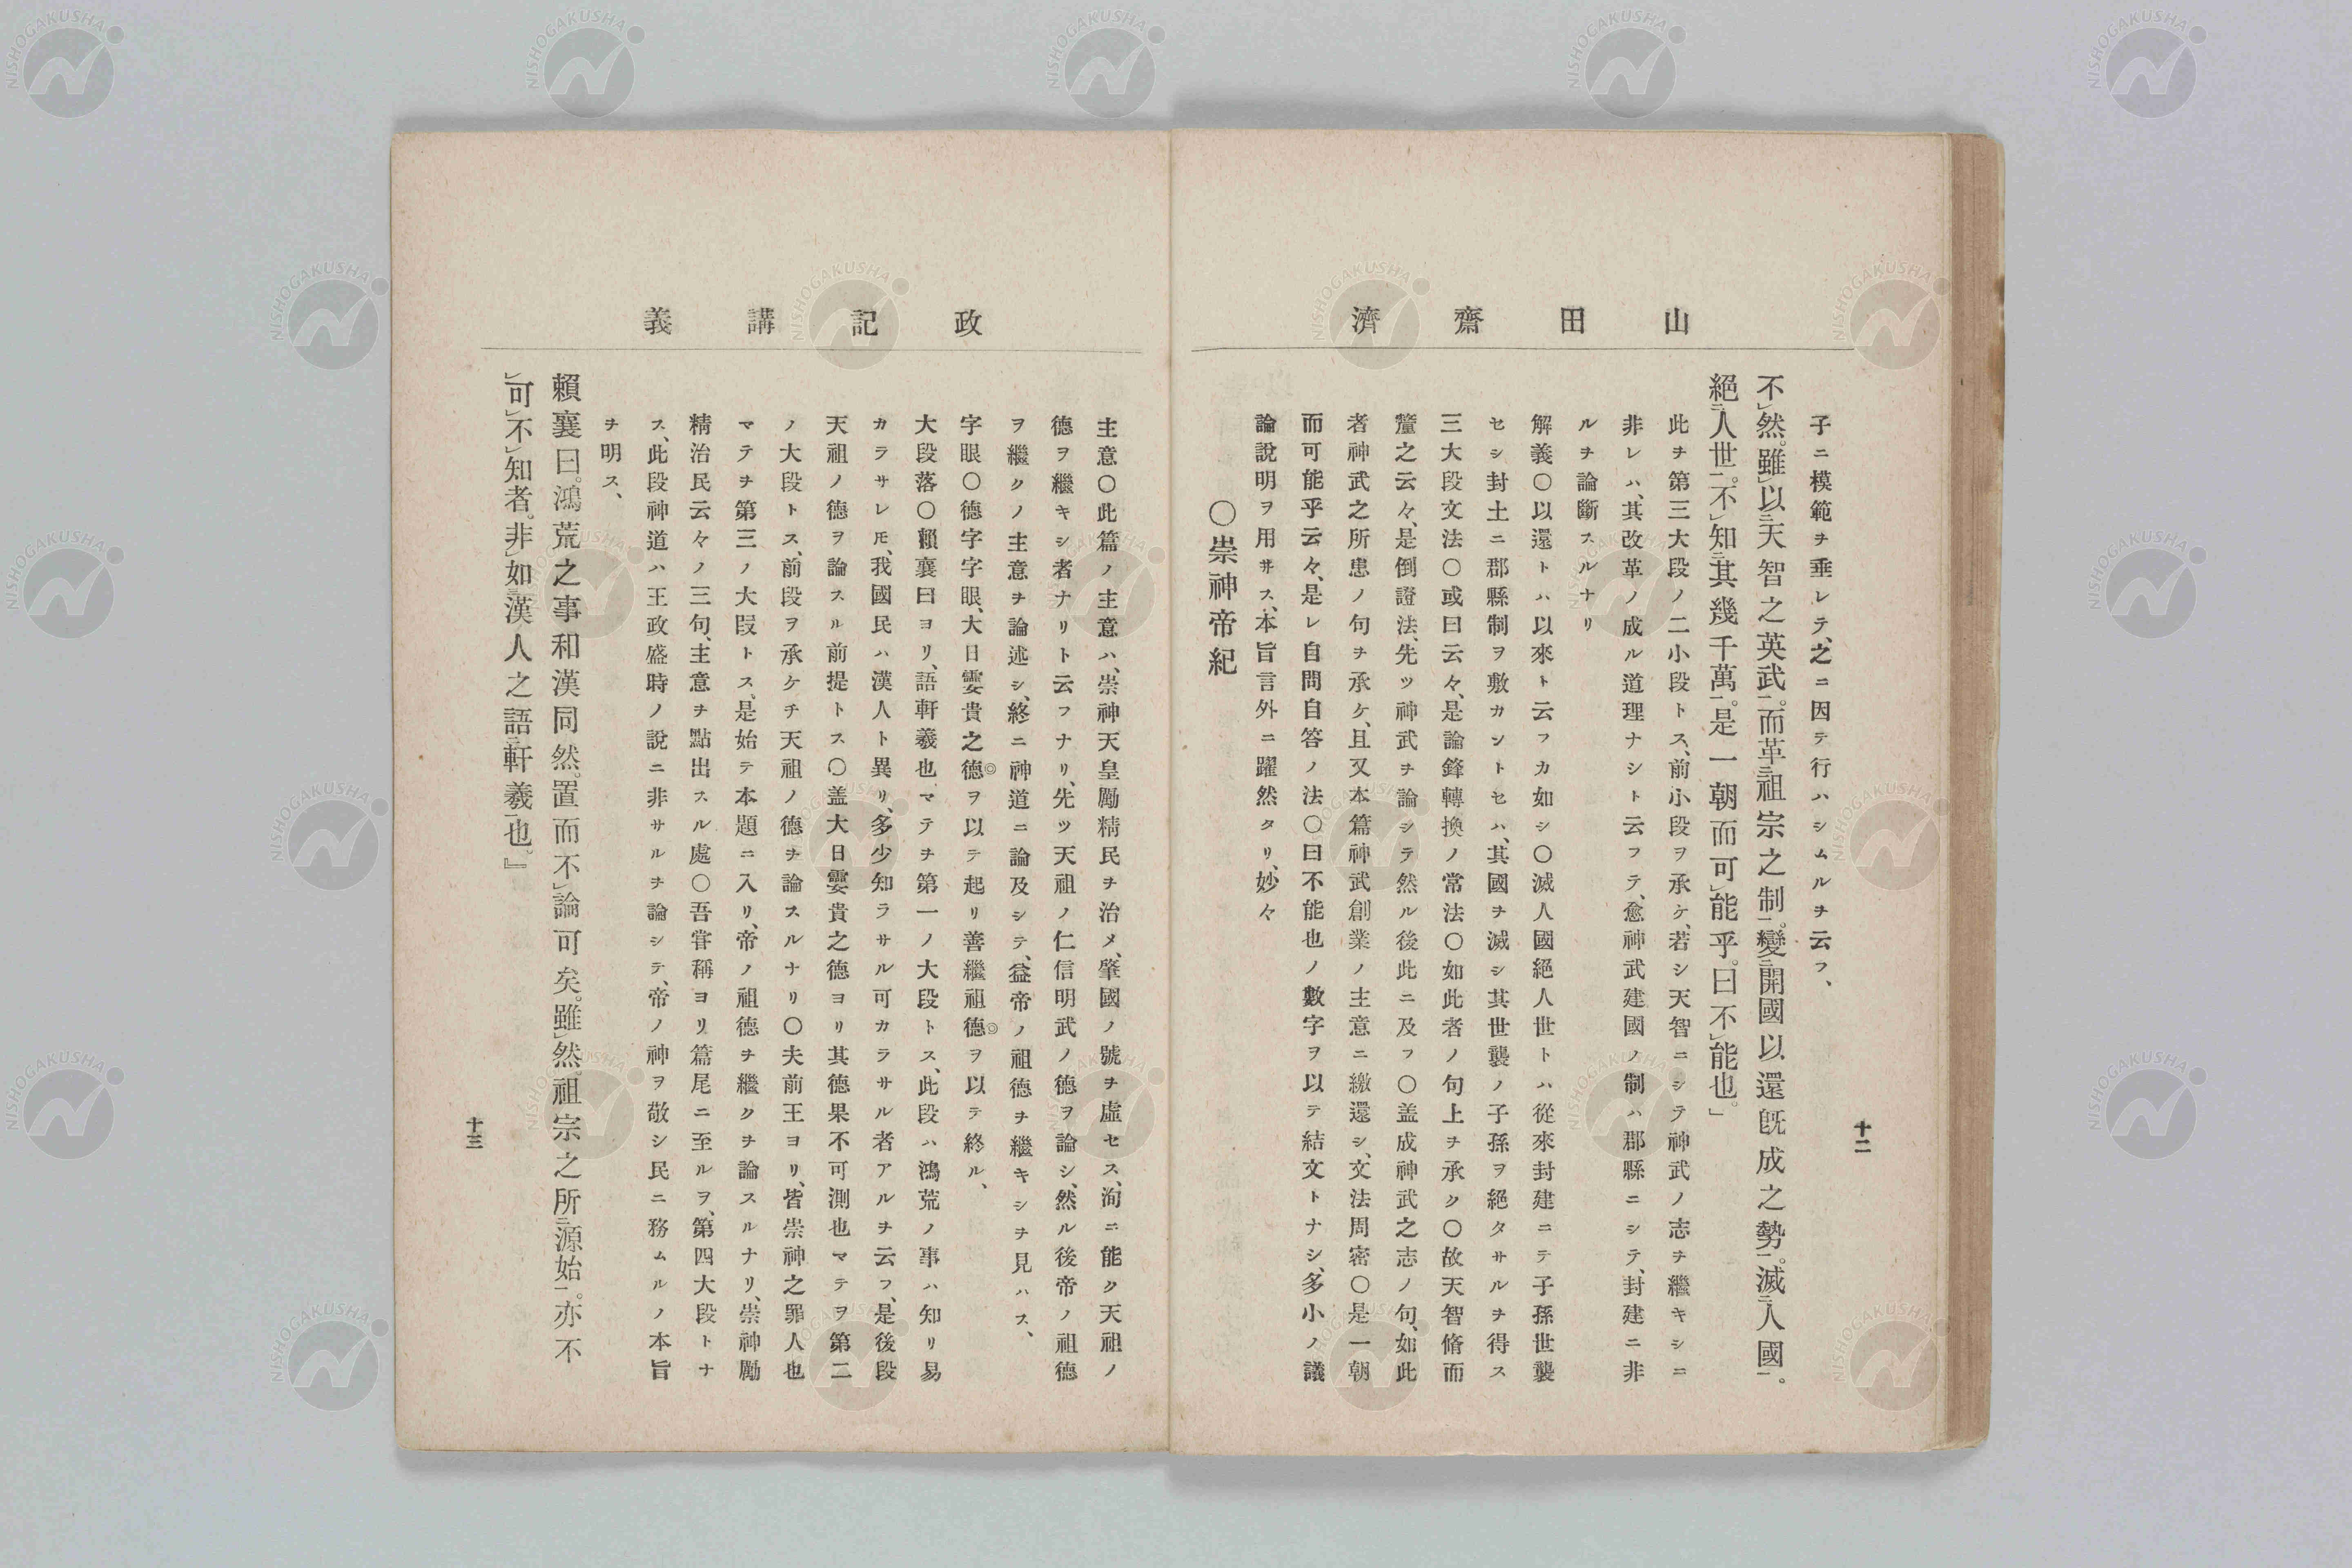 山田齋濟
子ニ模範ヲ垂レテ、之ニ因テ行ハシムルヲ云フ、
不㆑然。雖㆑以㆓天智之英武㆒。而革㆓祖宗之制㆒。變㆓開國以還既成之勢㆒。滅㆓人國㆒。
絕㆓人世㆒。不㆑知㆓其幾千萬㆒。是一朝而可㆑能乎。曰不㆑能也。」
此ヲ第三大段ノ二小段トス、前小段ヲ承ケ、若シ天智ニシテ神武ノ志ヲ繼キシニ
非レハ、其改革ノ成ル道理ナシト云フテ、愈神武建國ノ制ハ郡縣ニシテ、封建ニ非
ルヲ論斷スルナリ
解義〇以還トハ以來ト云フカ如シ〇滅人國絕人世トハ從來封建ニテ子孫世襲
セシ封土ニ郡縣制ヲ敷カントセハ、其國ヲ滅シ其世襲ノ子孫ヲ絕タサルヲ得ス
三大段文法〇或曰云々、是論鋒轉換ノ常法〇如此者ノ句上ヲ承ク〇故天智脩而
釐之云々、是倒證法、先ツ神武ヲ論シテ然ル後此ニ及フ〇盖成神武之志ノ句、如此
者神武之所患ノ句ヲ承ケ、且又本篇神武創業ノ主意ニ繳還シ、文法周密〇是一朝
而可能乎云々、是レ自問自答ノ法〇曰不能也ノ數字ヲ以テ結文トナシ、多小ノ議
論說明ヲ用サス、本旨言外ニ躍然タリ、妙々
〇崇神帝紀
十二
政記講義
主意〇此篇ノ主意ハ、崇神天皇勵精民ヲ治メ、肇國ノ號ヲ虛セス、洵ニ能ク天祖ノ
德ヲ繼キシ者ナリト云フナリ、先ツ天祖ノ仁信明武ノ德ヲ論シ、然ル後帝ノ祖德
ヲ繼クノ主意ヲ論述シ、終ニ神道ニ論及シテ、益帝ノ祖德ヲ繼キシヲ見ハス、
字眼〇德字字眼、大日孁貴之德◎ヲ以テ起リ善繼祖德◎ヲ以テ終ル、
大段落〇賴襄曰ヨリ、語軒羲也マテヲ第一ノ大段トス、此段ハ鴻荒ノ事ハ知リ易
カラサレ𪜈、我國民ハ漢人ト異リ、多少知ラサル可カラサル者アルヲ云フ、是後段
天祖ノ德ヲ論スル前提トス〇盖大日孁貴之德ヨリ其德果不可測也マテヲ第二
ノ大段トス、前段ヲ承ケテ天祖ノ德ヲ論スルナリ〇夫前王ヨリ、皆崇神之罪人也
マテヲ第三ノ大段トス、是始テ本題ニ入リ、帝ノ祖德ヲ繼クヲ論スルナリ、崇神勵
精治民云々ノ三句、主意ヲ點出スル處〇吾甞稱ヨリ篇尾ニ至ルヲ、第四大段トナ
ス、此段神道ハ王政盛時ノ說ニ非サルヲ論シテ、帝ノ神ヲ敬シ民ニ務ムルノ本旨
ヲ明ス、
賴襄曰。鴻荒之事和漢同然。置而不㆑論可矣。雖㆑然。祖宗之所㆓源始㆒。亦不
㆑可㆑不㆑知者。非㆘如㆔漢人之語㆓軒羲㆒也。』
十三
NISHOGAKUSHA